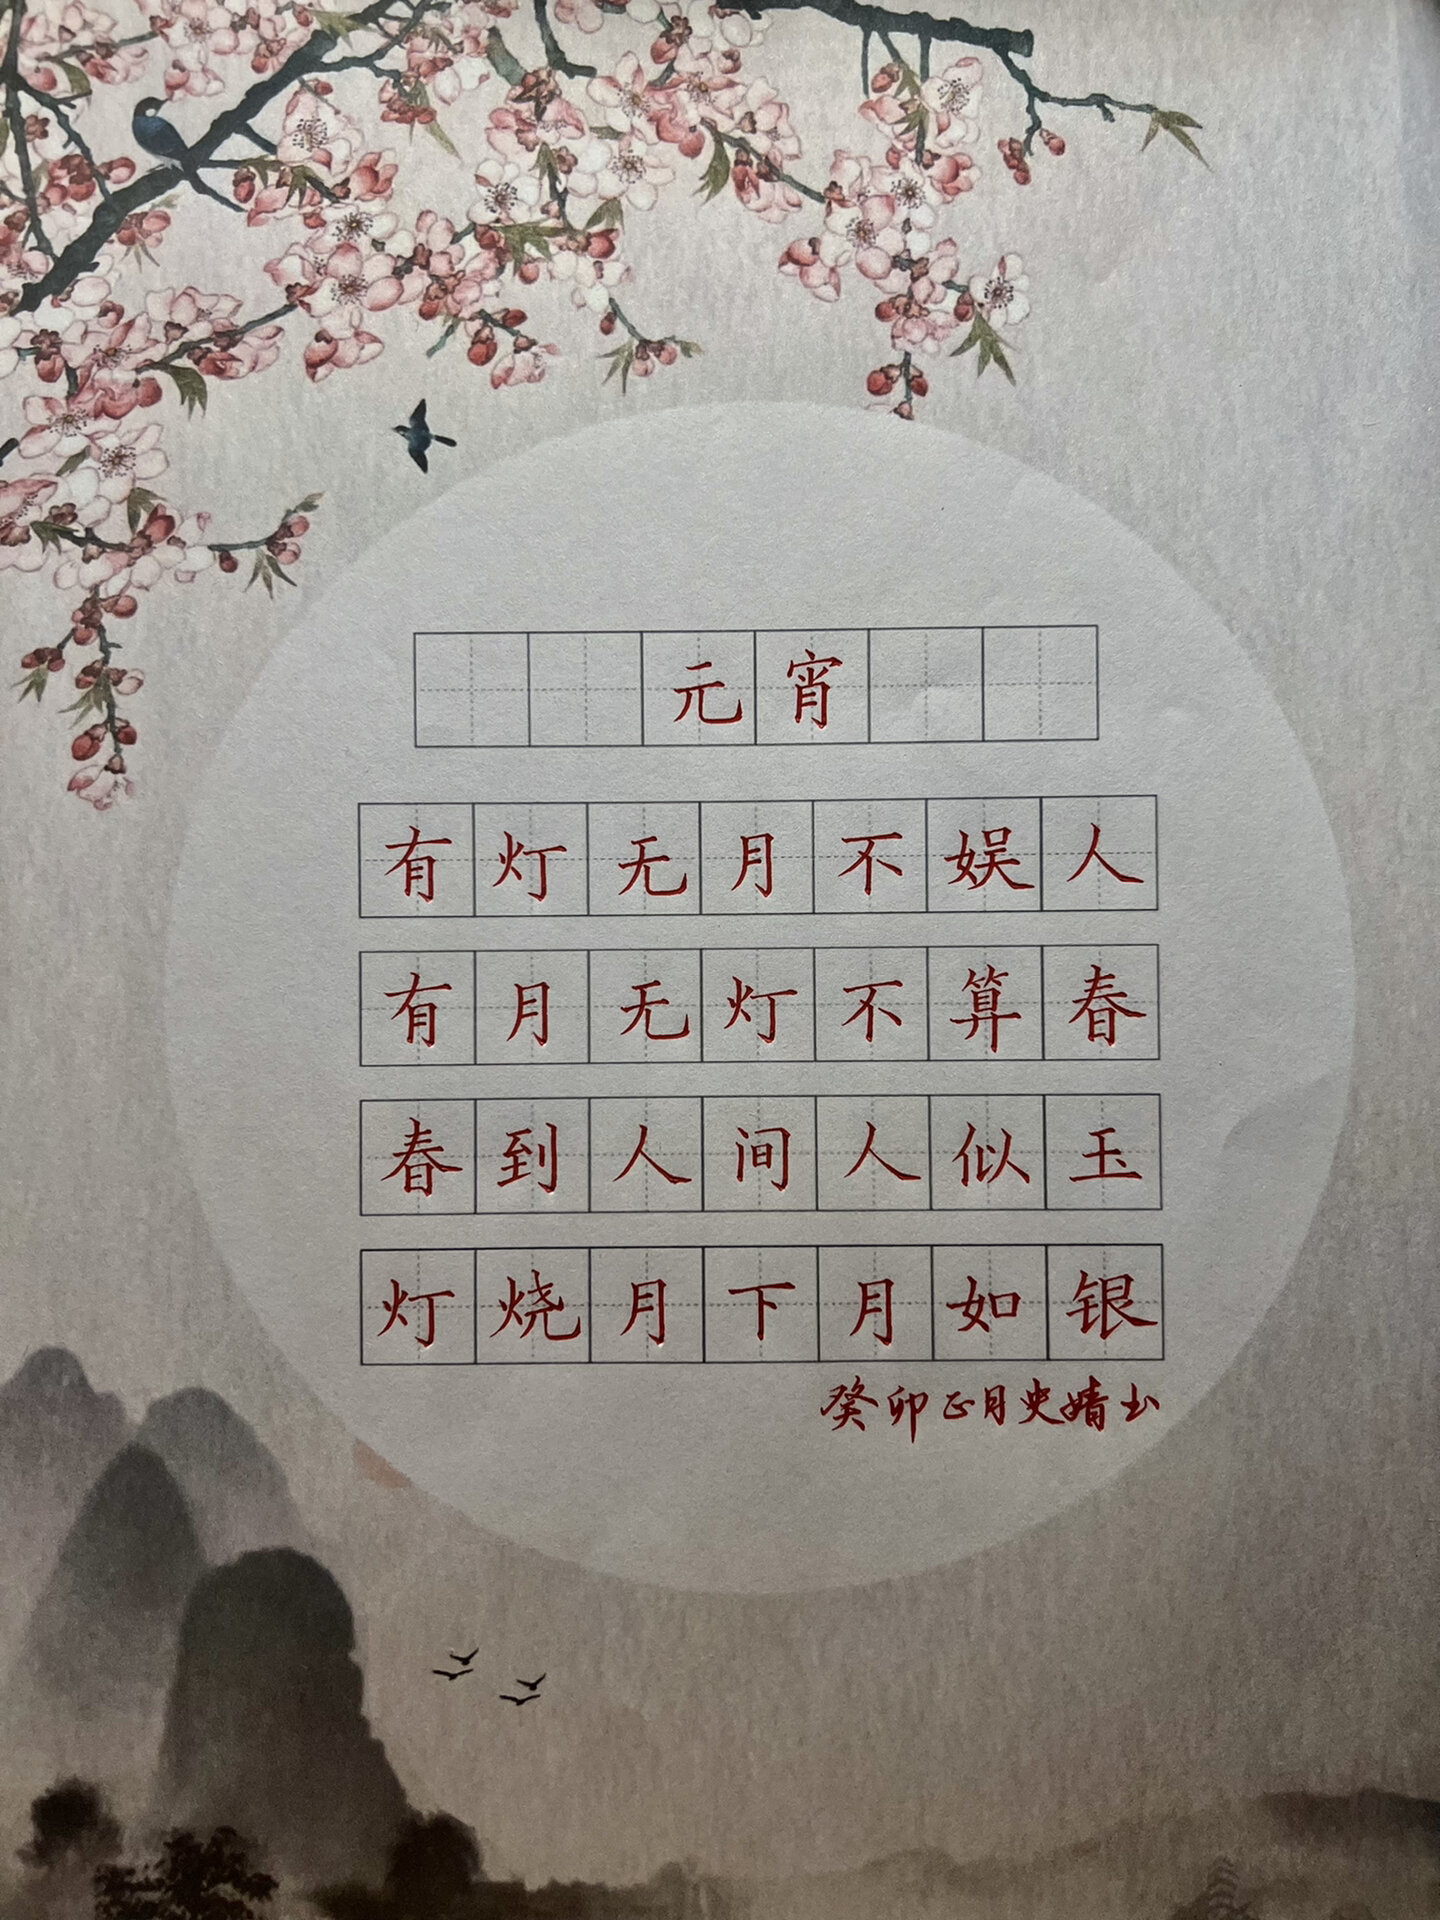 元宵
有灯无月不娱人
有月无灯不算春
春到人间人似玉
灯烧月下月如银
癸卯正月史婧书